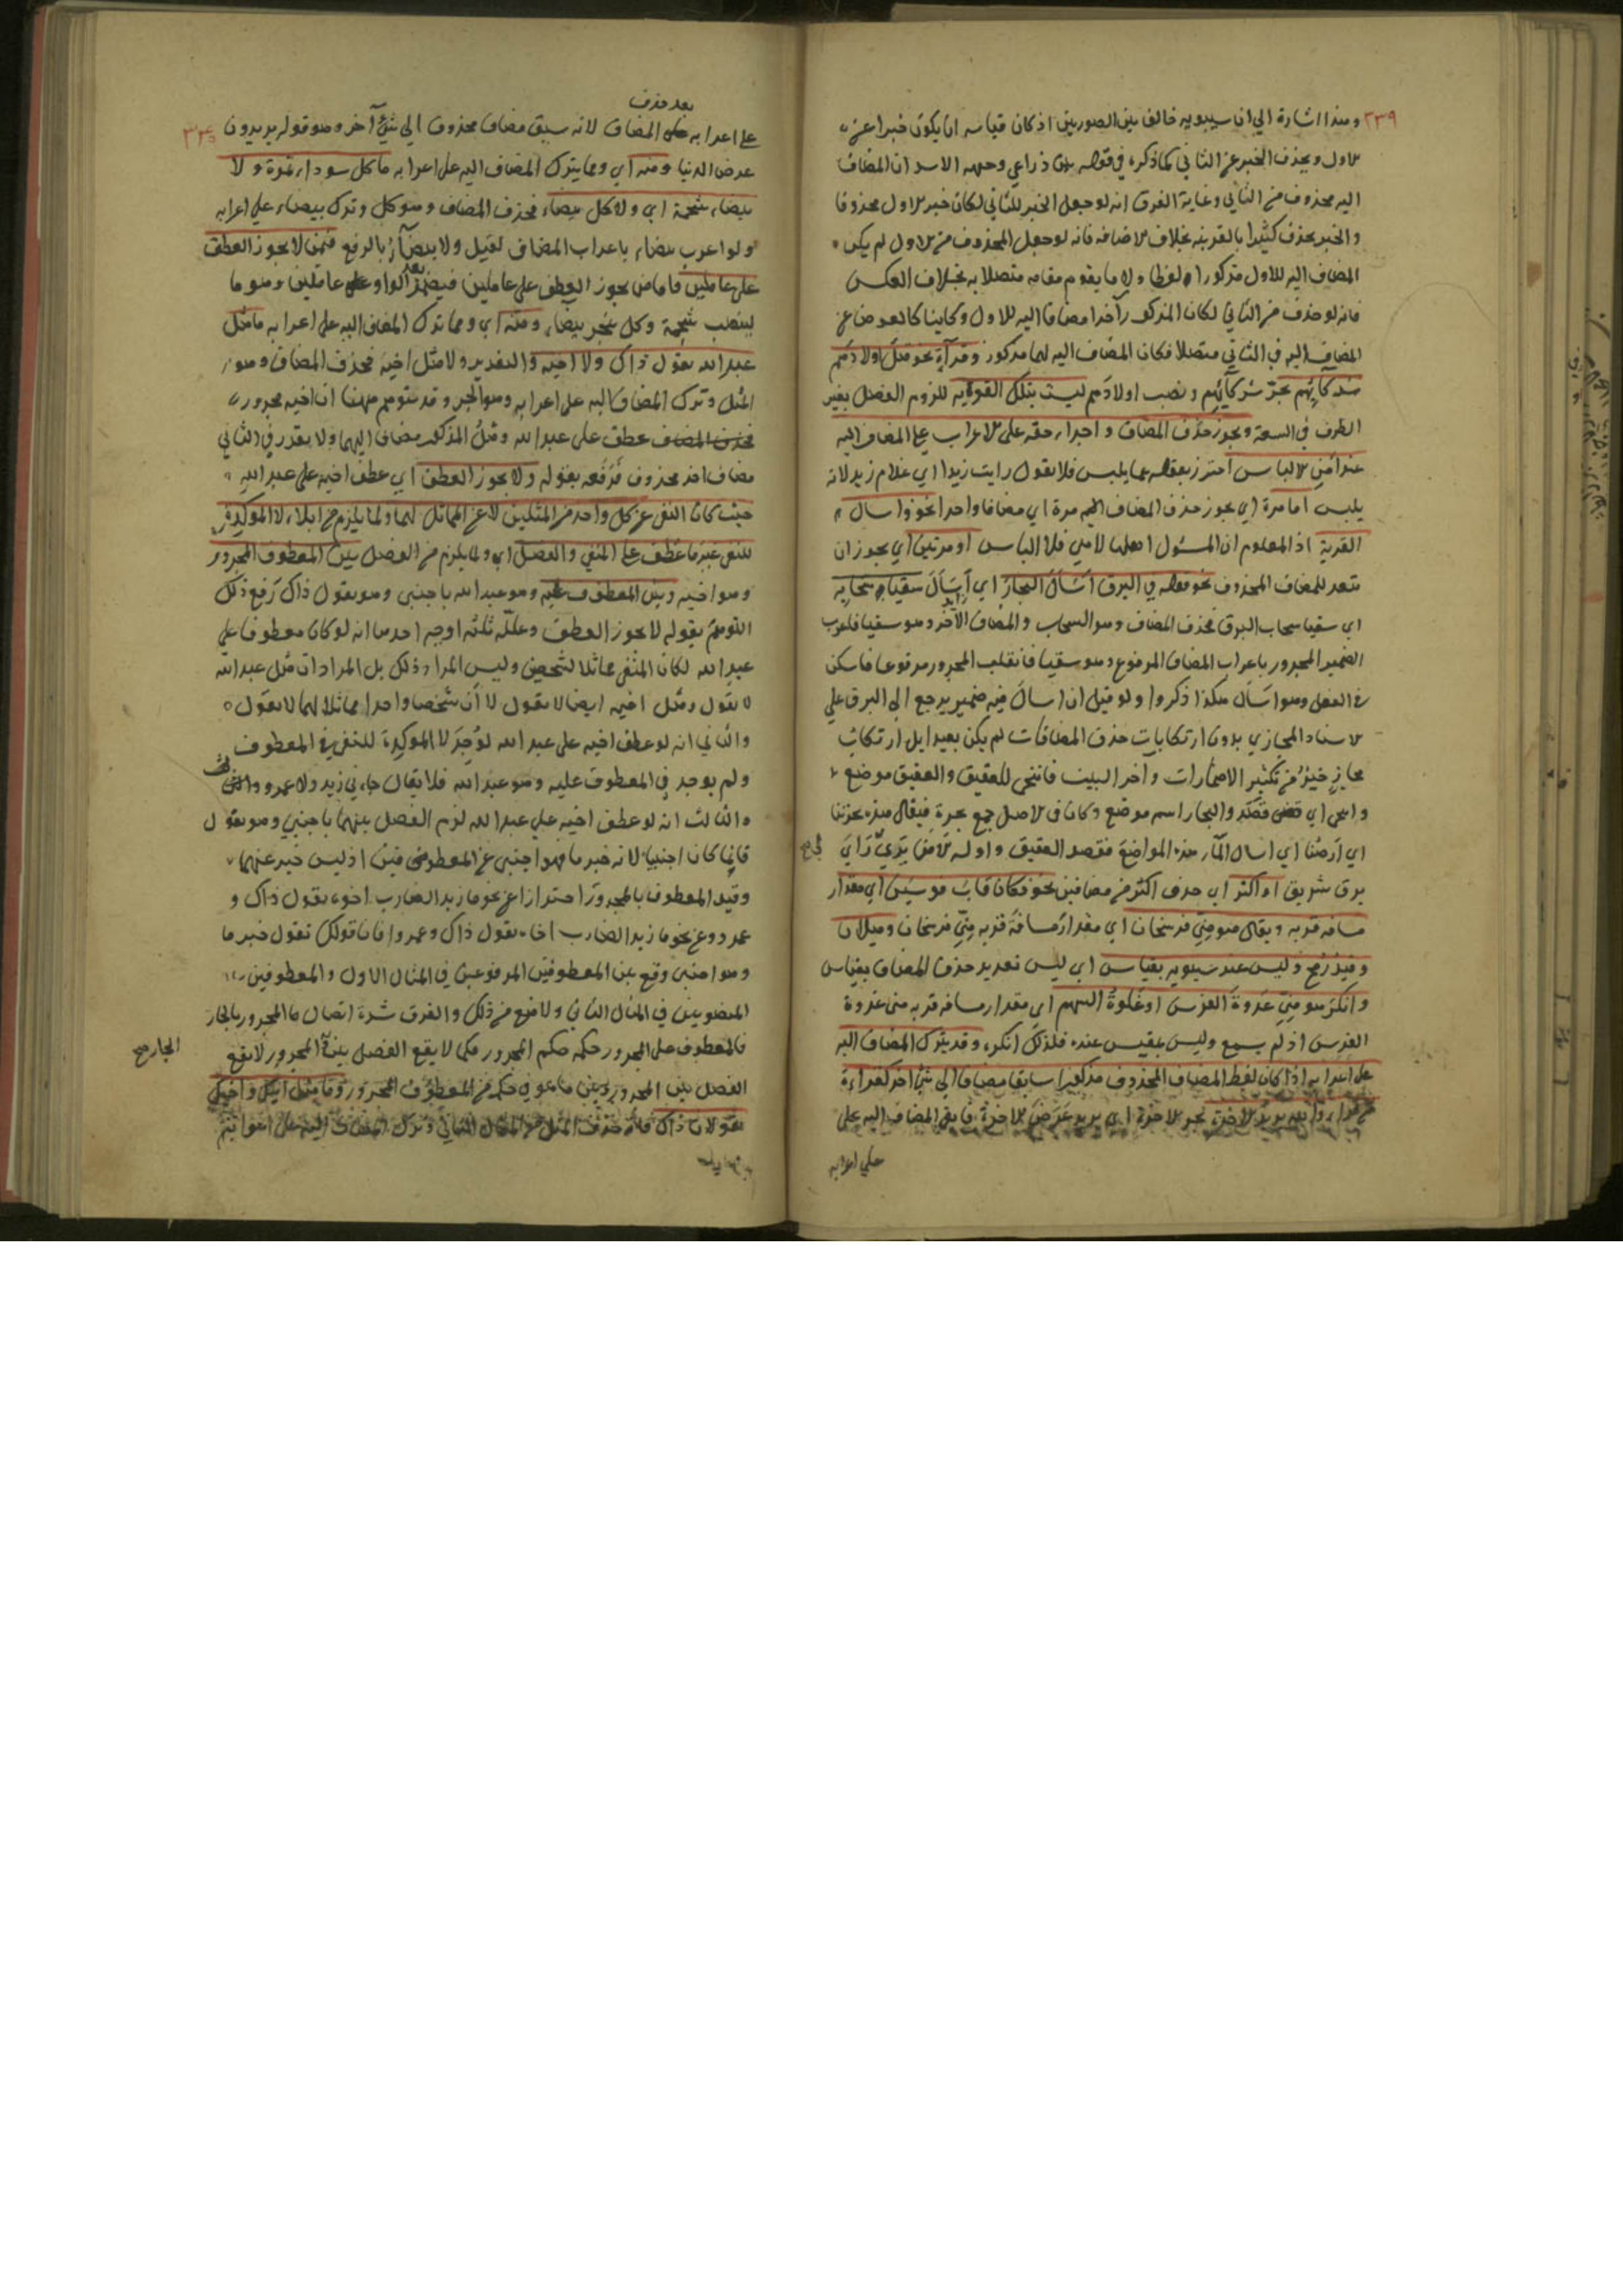 ٢٣٩
وهذا اشارة الي ان سيبويه خالف بين الصورتين اذ كان قياسه ان يكون خبرا عن
الاول ويحذف الخبر عن الثاني كما ذكره في قوله بين ذراعي وجبهة الاسد ان المضاف
اليه محذوف من الثاني وغاية الفرق انه لو جعل الخبر للثاني لكان خبر الاول محذوفا
والخبر يحذف كثيرا بالقرينة بخلاف الاضافة فانه لو جعل المحذوف من الاول لم يكن
المضاف اليه للاول مذكورا لا لفظا ولا ما يقوم مقامه متصلا به بخلاف العكس
فانه لو حذف من الثاني لكان المذكور آخرا مضافا اليه للاول وكاينا كالعوض عن
المضاف اليه في الثاني متصلا فكان المضاف اليه لهما مذكور وقراءة نحو قتل اولادهم
شركائهم بجر شركائهم ونصب اولادهم ليست بتلك القوية للزوم الفصل بغير
الظرف في السعة ويجوز حذف المضاف واجراء حقه على الاعراب على المضاف اليه
عند امن الالباس احترز بقوله عما يلبس فلا يقول رايت زيدا اي غلام زيد لانه
يلبس اما مرة اي يجوز حذف المضاف اليه مرة اي مضافا واحدا نحو واسال
القرية اذ المعلوم ان المسئول اهلها لا هي فلا الباس او مرتين اي يجوز ان
يتعدد المضاف المحذوف نحو قوله في البرق اسال البحار اي اسال سقيا سحابه
اي سقيا سحاب البرق فحذف المضاف وهو السحاب والمضاف الآخر وهو سقيا فاعرب
الضمير المجرور باعراب المضاف المرفوع وهو سقيا فانقلب المجرور مرفوعا فاسكن
في الفعل وهو اسال هكذا ذكروا ولو قيل ان اسال فيه ضمير يرجع الى البرق علي
الاسناد المجازي بدون ارتكابات حذف المضافات لم يكن بعيدا بل ارتكاب
مجاز خير من تكثير الاضمارات وآخر البيت فانتحى للعقيق والعقيق موضع
وانتحى اي قصد والبحار اسم موضع وكان في الاصل جمع بحرة فيقال هذه بحرتنا
اي ارضنا اي اسال المآء هذه المواضع فقصد العقيق واوله الا من يري راي
برق شريق او اكثر اي حذف اكثر من مضافين نحو فكان قاب قوسين اي مقدار
مسافة قربه ويقال هو مني فرسخان اي مقدار مسافة قربه مني فرسخان وميلان
وقيد رمح وليس عند سيبويه بقياس اي ليس تعديد حذف المضاف بقياس
وانكر هو مني عدوة الفرس او غلوة السهم اي مقدار مسافة قربه مني عدوة
الفرس اذ لم يسمع وليس بمقيس عنده فلذلك انكره وقد يترك المضاف اليه
على اعرابه اذا كان لفظ المضاف المحذوف مذكورا سابقا مضافا الي شئ آخر كقراءة
من قراء والله يريد الاخرة بجر الاخرة اي يريد عرض الاخرة فابقي المضاف اليه على
علي اعرابه
بعد حذف
على اعرابه المضاف لانه سبق مضاف محذوف الي شئ آخر وهو قوله يريدون
عرض الدنيا ومنه اي ومما يترك المضاف اليه على اعرابه ما كل سوداء تمرة ولا
بيضاء شحمة اي ولا كل بيضاء فحذف المضاف وهو كل وترك بيضاء علي اعرابه
ولو اعرب بيضاء باعراب المضاف لقيل ولا بيضآء بالرفع فيمن لا يجوز العطف
على عاملين فاما من يجوز العطف على عاملين فيضمر الواو عاملين وهو ما
لينصب شحمة وكل بجر بيضاء ومنه اي ومما ترك المضاف اليه على اعرابه ما مثل
عبد الله يقول ذاك ولا اخيه والتقدير ولا مثل اخيه فحذف المضاف وهو
المثل وترك المضاف اليه على اعرابه وهو الجر وقد يتوهم ههنا ان اخيه مجرور
عطف على عبد الله ومثل المذكور مضاف اليهما ولا يقدر في الثاني
مضاف اخر محذوف فرفعه بقوله ولا يجوز العطف اي عطف اخيه على عبد الله
حيث كان النفي عن كل واحد من المثلين لا عن المماثل لهما ولما يلزم من ايلاء لا المؤكدة
للنفي غير ما عطف على المنفي والفصل اي ولما يلزم من الفصل بين المعطوف المجرور
وهو اخيه وبين المعطوف عليه وهو عبد الله باجنبي وهو يقول ذاك رفع ذلك
التوهم بقوله لا يجوز العطف وعلله ثلثة اوجه احدها انه لو كان معطوفا علي
عبد الله لكان المنفي مماثلا لشخصين وليس المراد ذلك بل المراد ان مثل عبد الله
لا يقول ومثل اخيه ايضا لا يقول لا ان شخصا واحدا مماثلا لهما لا يقول
والثاني انه لو عطف اخيه على عبد الله لوجد لا المؤكدة للنفي في المعطوف
ولم يوجد في المعطوف عليه وهو عبد الله فلا يقال جاءني زيد ولا عمرو
والثالث انه لو عطف اخيه علي عبد الله لزم الفصل بينهما باجنبي وهو يقول
فانما كان اجنبيا لانه خبر ما فهو اجنبي عن المعطوفين اذ ليس خبر عنهما
وقيد المعطوف بالمجرور احترازا عن نحو ما زيد الضارب اخوه يقول ذاك و
عمرو وعن نحو ما زيد الضارب اخاه يقول ذاك وعمروا فان قولك تقول خبر ما
وهو اجنبي وقع بين المعطوفين المرفوعين في المثال الاول والمعطوفين
المنصوبين في المثال الثاني ولا منع من ذلك والفرق شدة اتصال المجرور بالجار
فالمعطوف على المجرور حكمه حكم المجرور فكما لا يقع الفصل بين المجرور لا يقع
الجار صح
الفصل بين المجرور وبين ما هو في حكمه من المعطوف المجرور وما مثل ابيك واخيك
يقولان ذاك فانه حذف المثل من المثال الثاني وترك المضاف اليه على اعرابه